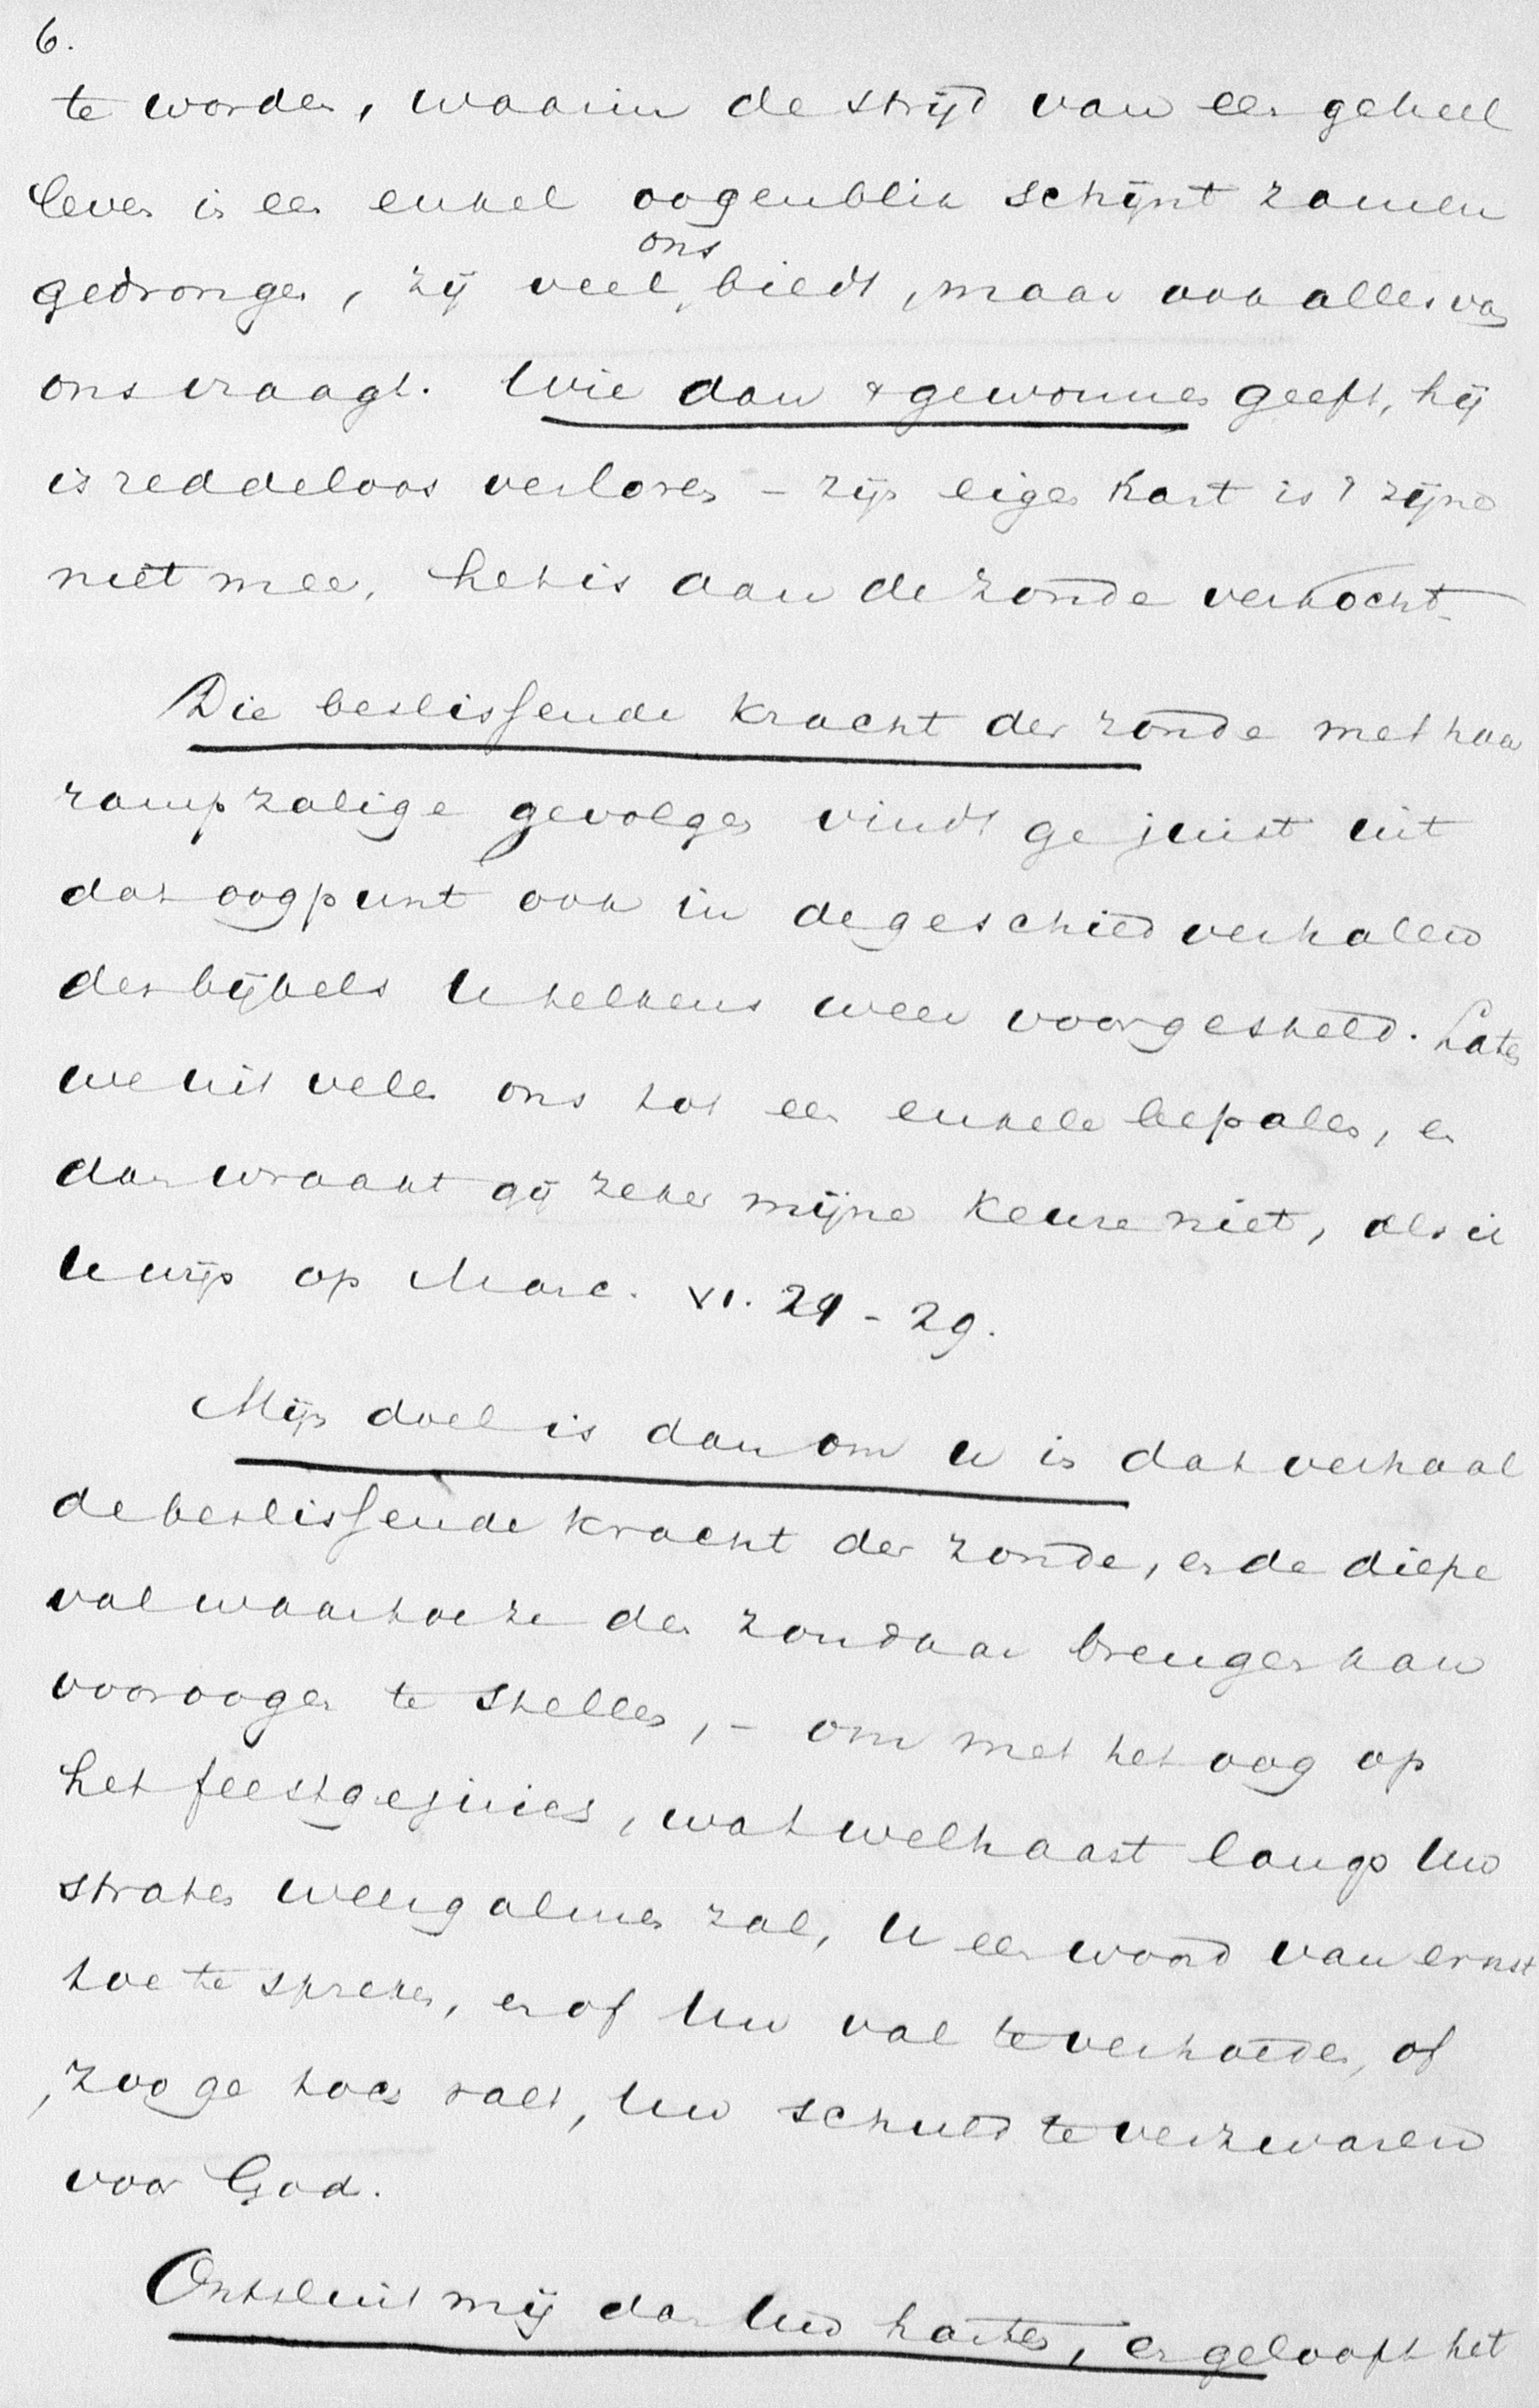 6.
te worden, waarin de strijd van een geheel
leven in een enkel oogenblik schijnt zamen
gedrongen, zij veel ons biedt, maar ook alles van
ons vraagt. Wie dan 't gewonnen geeft, hij
is reddeloos verloren – zijn eigen hart is 't zijne
niet meer, het is aan de zonde verkocht.
Die beslissende kracht der zonde met haar
rampzalige gevolgen vindt ge juist uit
dat oogpunt ook in de geschiedverhalen
des bijbels U telkens weer voorgesteld. Laten
we uit velen ons tot een enkele bepalen, en
dan wraakt gij zeker mijne keuze niet, als ik
U wijs op Marc. VI. 21 - 29.
Mijn doel is dan om U in dat verhaal
de beslissende kracht der zonde, en de diepe
val waartoe ze den zondaar brengen kan
voor oogen te stellen, – om met het oog op
het feestgejuich, wat welhaast langs Uw
straten weergalmen zal, U een woord van ernst
toe te spreken, en of Uw val te verhoeden, of
, zoo ge toch valt, Uw schuld te verzwaren
voor God.
Ontsluit mij dan Uw harten, en gelooft het